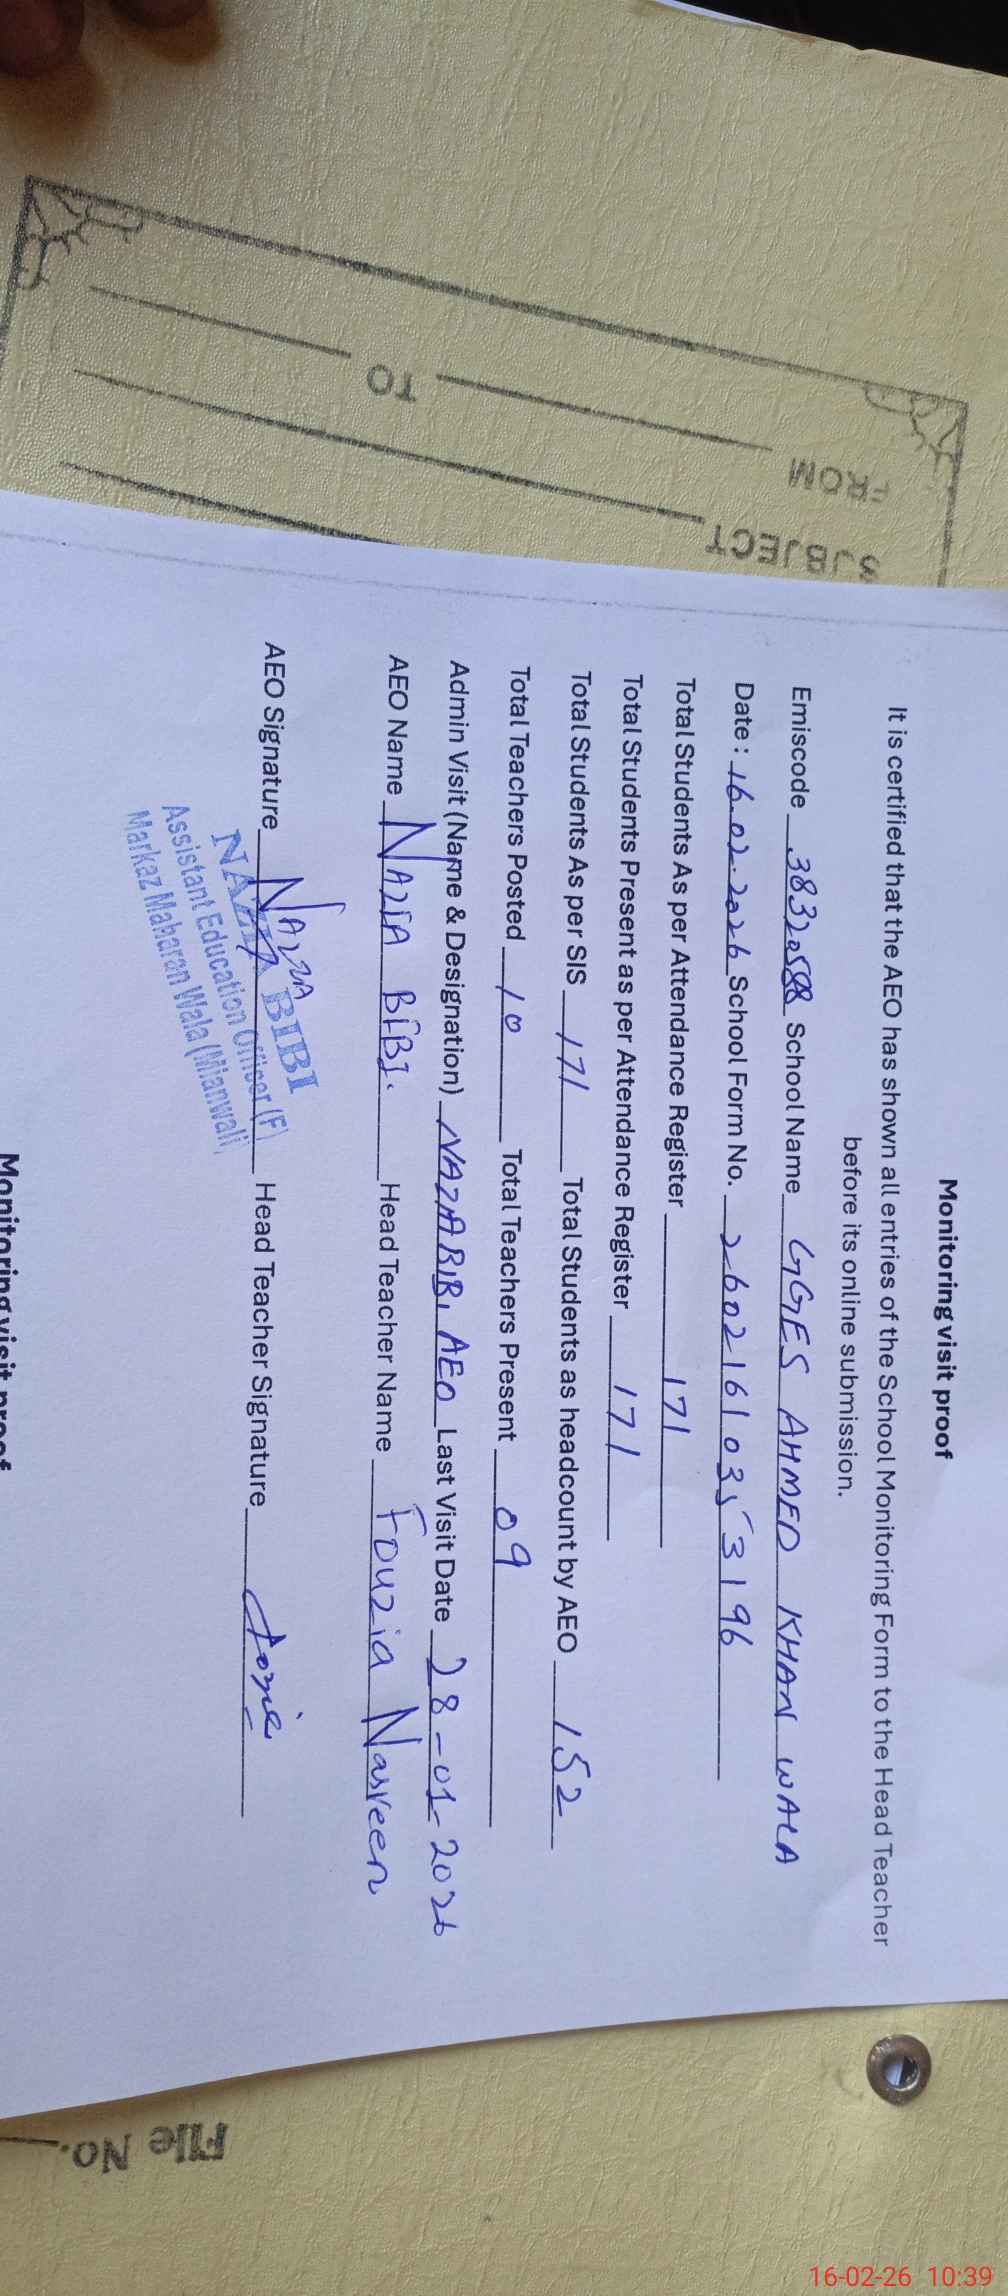 Monitoring visit proof
It is certified that the AEO has shown all entries of the School Monitoring Form to the Head Teacher
before its online submission.
Emiscode School Name GGES AHMED KHAN WALA
Date: 16.02.2026 School Form No. 26021610353196
Total Students As per Attendance Register 171
Total Students Present as per Attendance Register 171
Total Students As per SIS 171 Total Students as headcount by AEO 152
Total Teachers Posted 10 Total Teachers Present 09
Admin Visit (Name & Designation) NAZIA BIBI AEO Last Visit Date 28-01-2026
AEO Name NAZIA BIBI. Head Teacher Name Fouzia Nasreen
AEO Signature NAZIA Head Teacher Signature
NAZIA BIBI
Assistant Education Officer (F)
Markaz Maharan Wala (Mianwali)
Monitoring visit proof
FROM
TO
SUBJECT
File No.
16-02-26 10:39